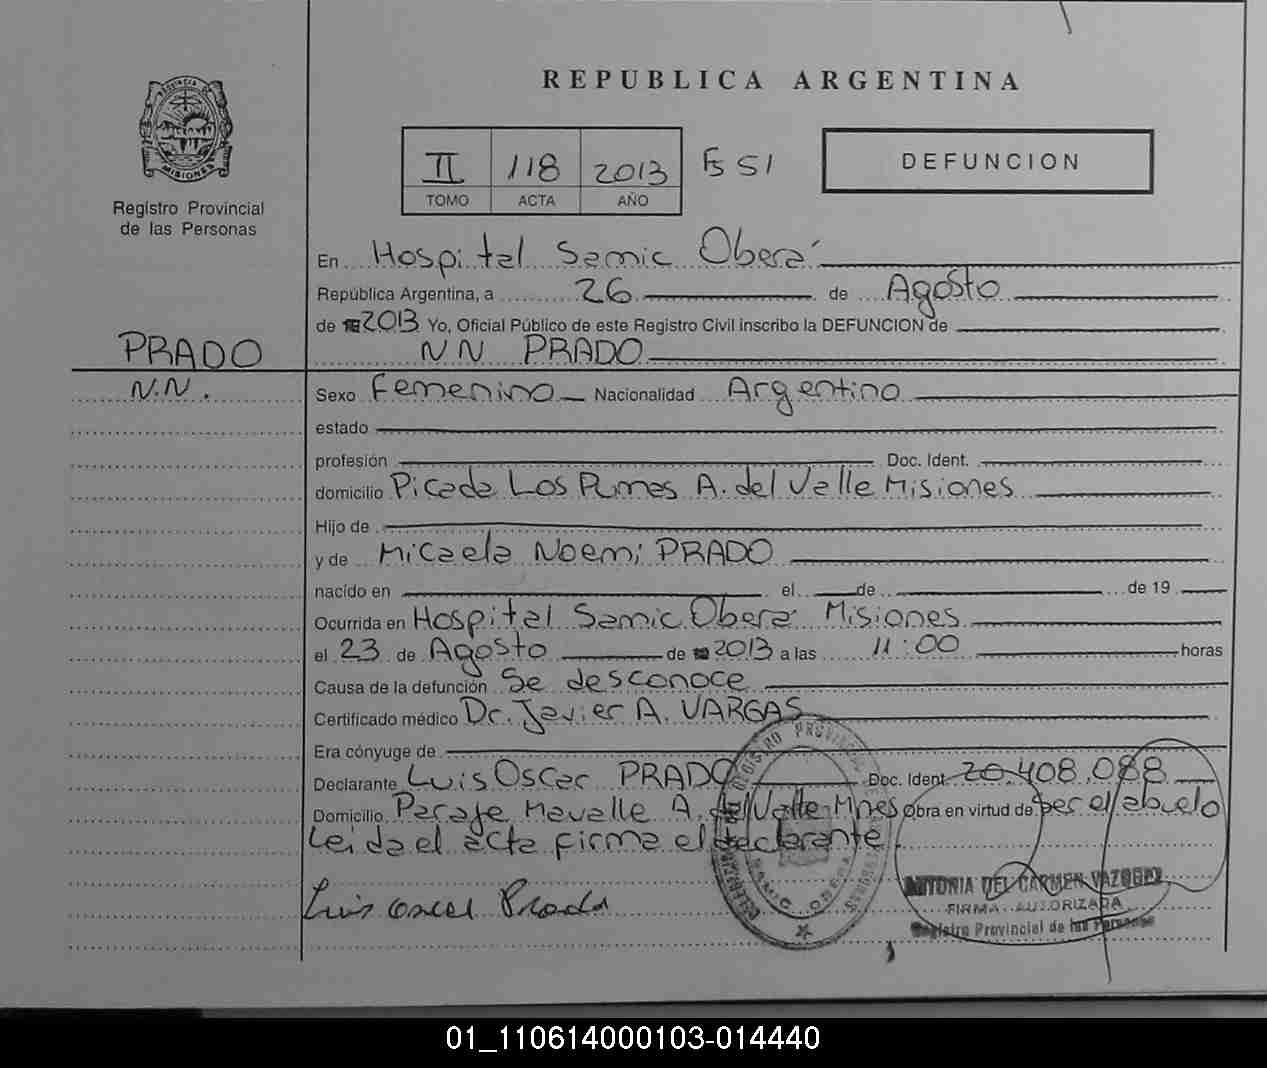 REPUBLICA ARGENTINA
PROVINCIA DE
MISIONES
Registro Provincial
de las Personas
II 118 2013 Fs 51
TOMO ACTA AÑO
DEFUNCION
En Hospital Samic Oberá
República Argentina, a 26 de Agosto
de 2013 Yo, Oficial Público de este Registro Civil inscribo la DEFUNCION de
PRADO
N.N.
NN PRADO
Sexo Femenino Nacionalidad Argentino
estado
profesión Doc. Ident.
domicilio Picada Los Pumas A. del Valle Misiones
Hijo de
y de Micaela Noemi PRADO
nacido en el de de 19
Ocurrida en Hospital Samic Oberá Misiones
el 23 de Agosto de 2013 a las 11:00 horas
Causa de la defunción Se desconoce
Certificado médico Dr. Javier A. VARGAS
Era cónyuge de
Declarante Luis Oscar PRADO Doc. Ident. 20.408.088
Domicilio Paraje Mavalle A. del Valle Mnes Obra en virtud de ser el abuelo
Leida el acta firma el declarante.
Luis Oscar Prado
REGISTRO PROVINCIAL
SAMIC OBERA
ANTONIA DEL CARMEN VAZQUEZ
FIRMA AUTORIZADA
Registro Provincial de las Personas
01_110614000103-014440